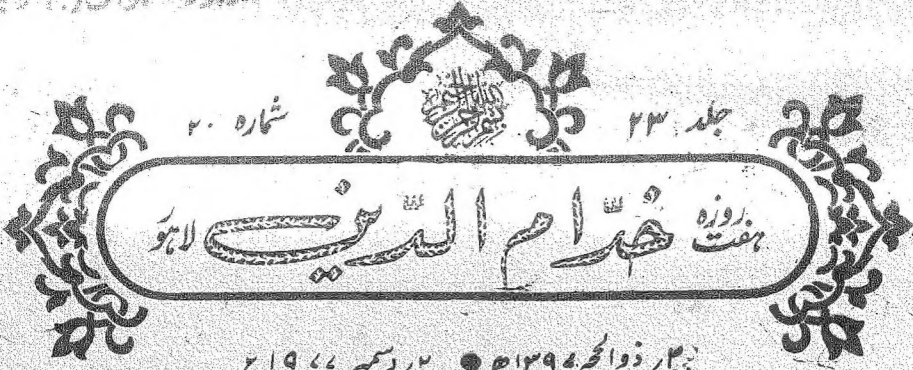 بسم اللہ الرحمن الرحیم
جلد ۲۳ شمارہ ۲۰
ہفت روزہ خدّام الدّین لاہور
ذوالحجہ ۱۳۹۷ھ ● ۲ر دسمبر ۱۹۷۷ء